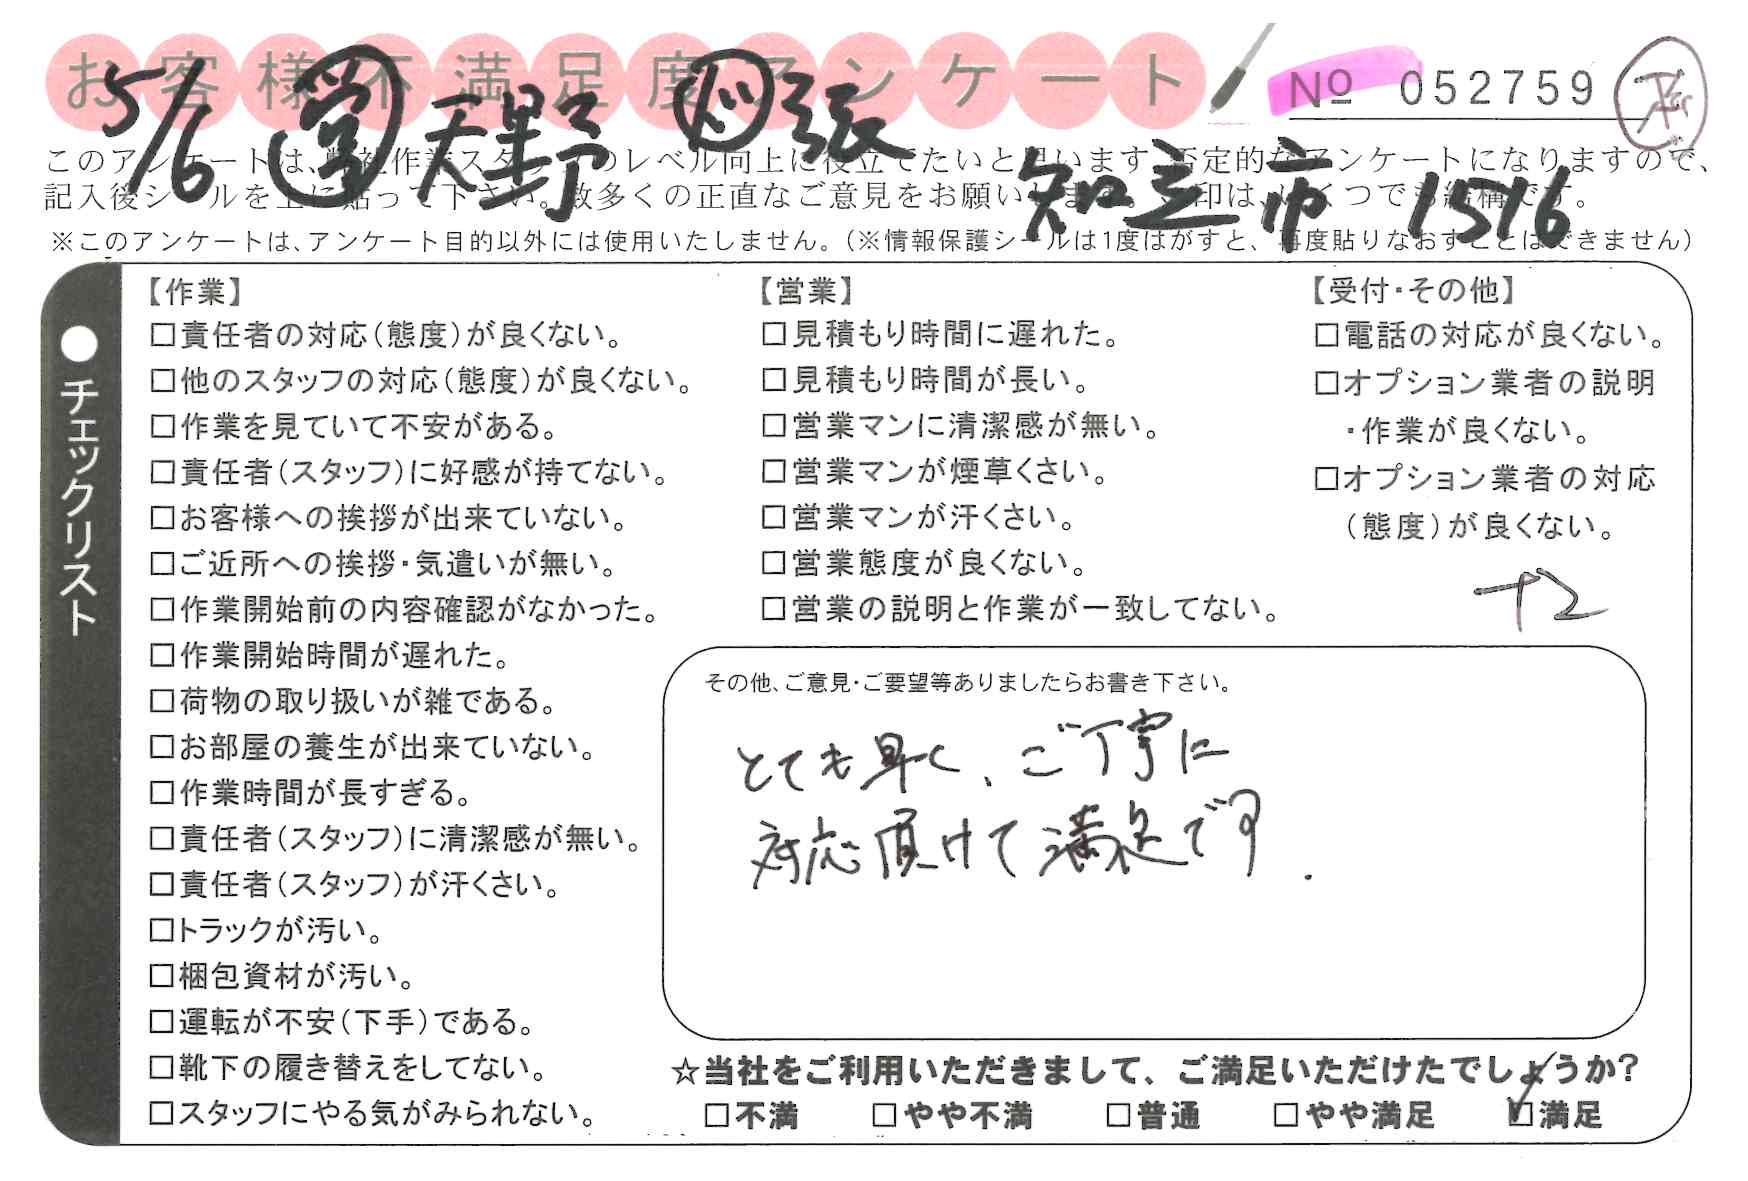 お客様不満足度アンケート
No 052759
5/6 営 天野 ド 張
知立市 1516
このアンケートは、弊社作業スタッフのレベル向上に役立てたいと思います。否定的なアンケートになりますので、
記入後シールを上に貼って下さい。数多くの正直なご意見をお願いします。✓印は、いくつでも結構です。
※このアンケートは、アンケート目的以外には使用いたしません。（※情報保護シールは1度はがすと、再度貼りなおすことはできません）
●チェックリスト
【作業】
□責任者の対応（態度）が良くない。
□他のスタッフの対応（態度）が良くない。
□作業を見ていて不安がある。
□責任者（スタッフ）に好感が持てない。
□お客様への挨拶が出来ていない。
□ご近所への挨拶・気遣いが無い。
□作業開始前の内容確認がなかった。
□作業開始時間が遅れた。
□荷物の取り扱いが雑である。
□お部屋の養生が出来ていない。
□作業時間が長すぎる。
□責任者（スタッフ）に清潔感が無い。
□責任者（スタッフ）が汗くさい。
□トラックが汚い。
□梱包資材が汚い。
□運転が不安（下手）である。
□靴下の履き替えをしてない。
□スタッフにやる気がみられない。
【営業】
□見積もり時間に遅れた。
□見積もり時間が長い。
□営業マンに清潔感が無い。
□営業マンが煙草くさい。
□営業マンが汗くさい。
□営業態度が良くない。
□営業の説明と作業が一致してない。
【受付・その他】
□電話の対応が良くない。
□オプション業者の説明
・作業が良くない。
□オプション業者の対応
（態度）が良くない。
+2
その他、ご意見・ご要望等ありましたらお書き下さい。
とても早く、ご丁寧に
対応頂けて満足です.
☆当社をご利用いただきまして、ご満足いただけたでしょうか?
□不満 □やや不満 □普通 □やや満足 ☑満足